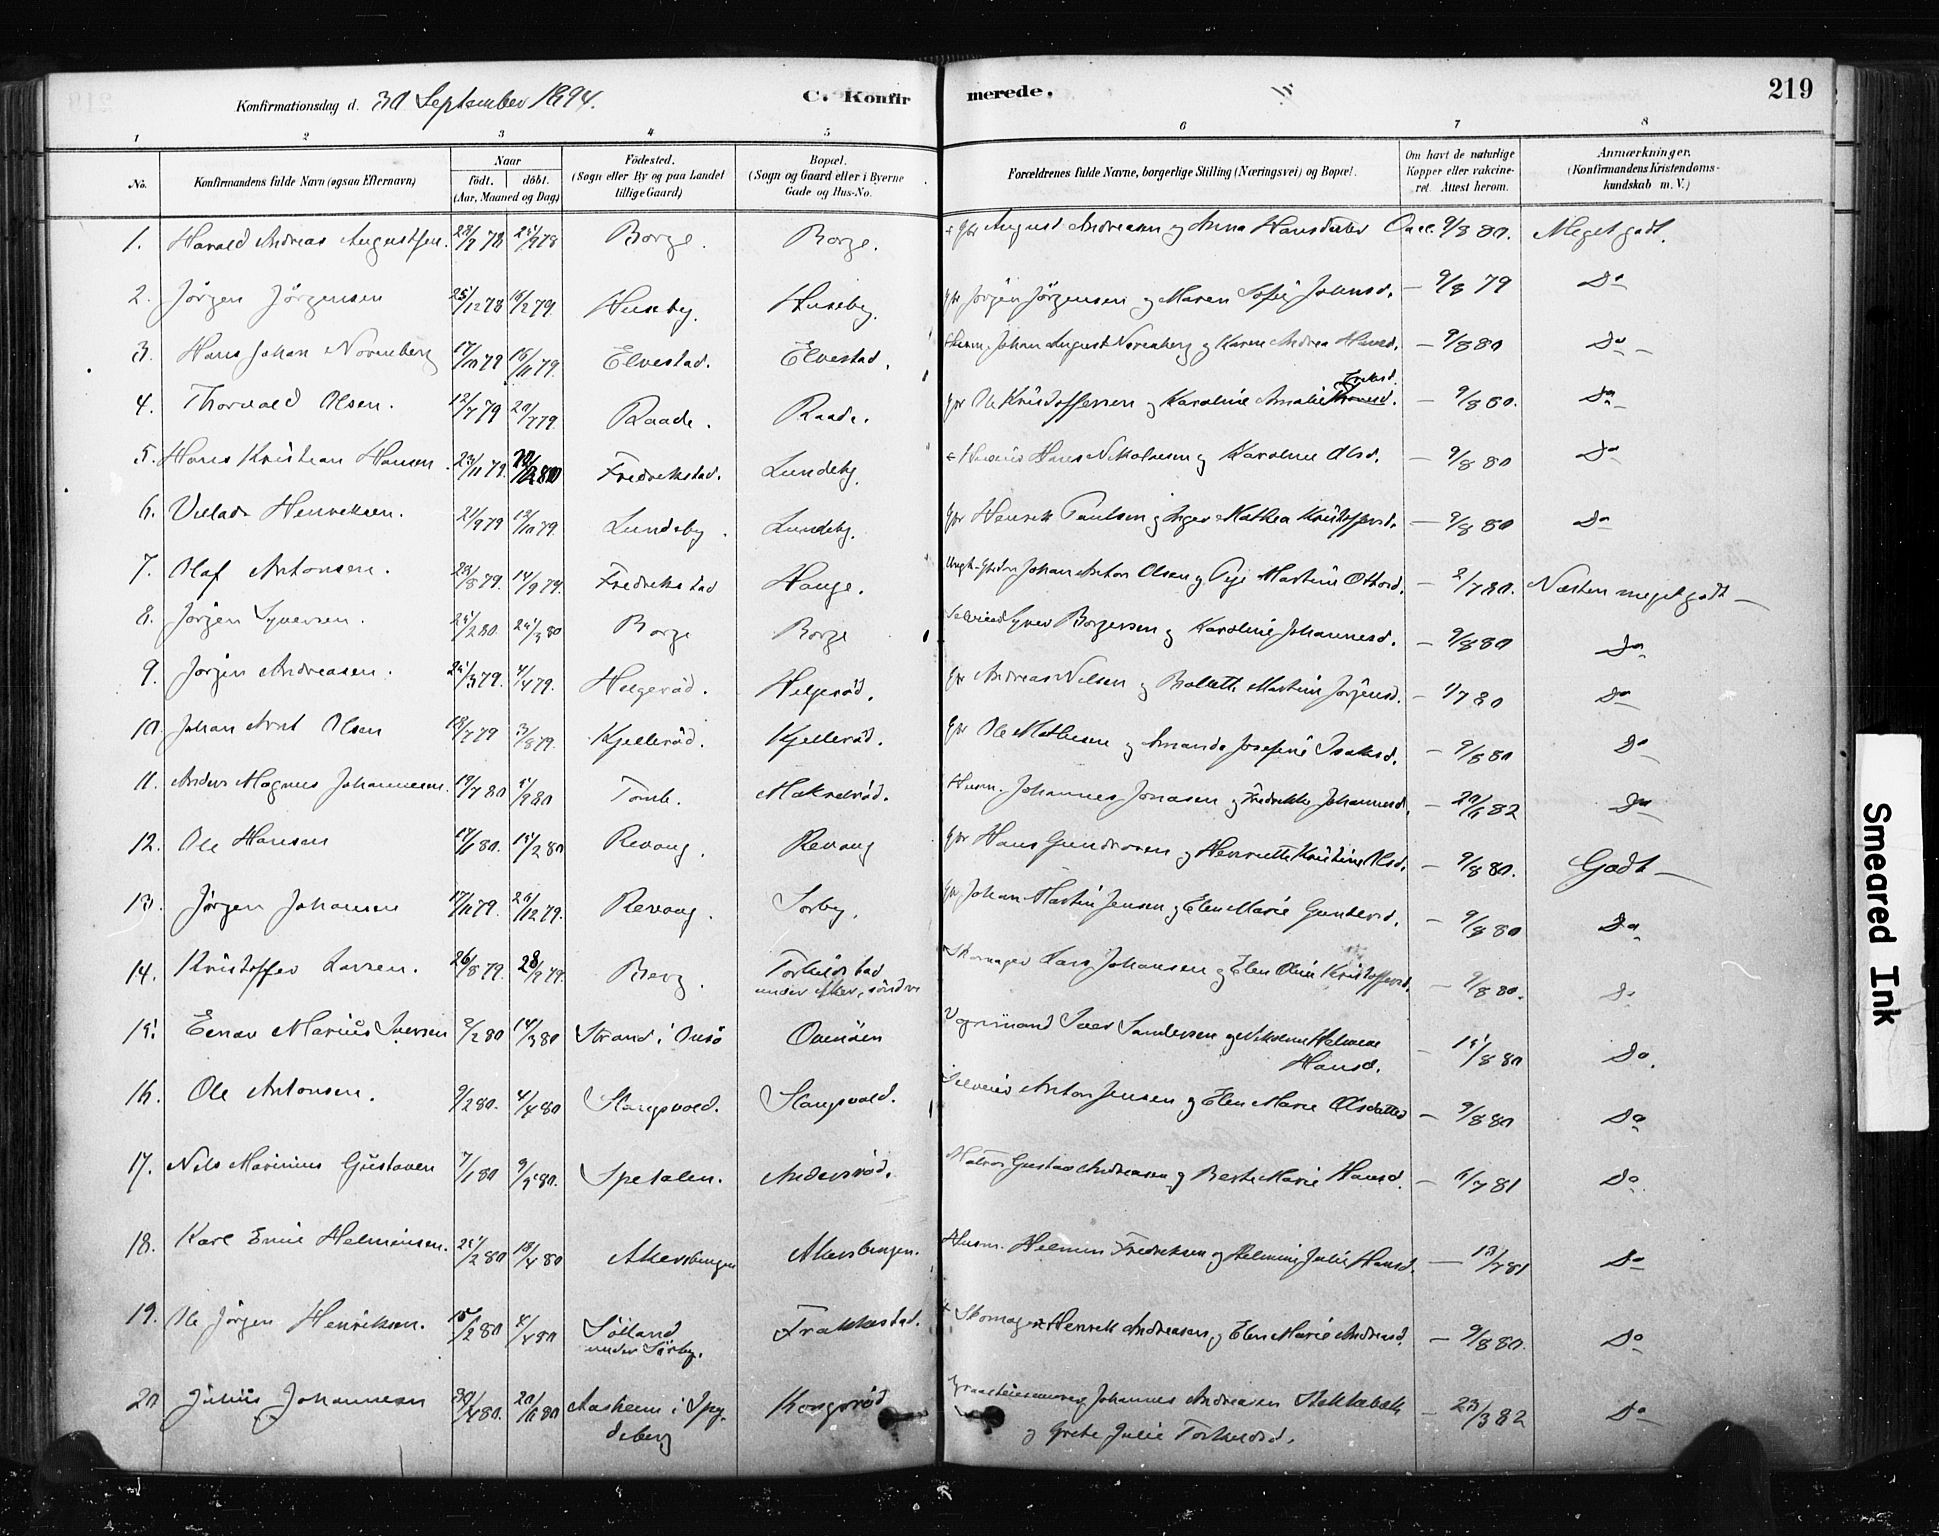 Konfirmationsdag d. 30 September 1894. C. Konfir merede. 219
1 2 3 4 5 6 7 8
No. Konfirmandens fulde Navn (ogsaa Efternavn) Naar födt. döbt. (Aar, Maaned og Dag) Födested. (Sogn eller By og paa Landet tillige Gaard) Bopæl. (Sogn og Gaard eller i Byerne Gade og Hus-No. Forældrenes fulde Navne, borgerlige Stilling (Næringsvei) og Bopæl. Om havt de naturlige Kopper eller vakcineret. Attest herom. Anmærkninger. (Konfirmandens Kristendomskundskab m. V.)
1. Harald Andreas Augustsen. Borge. Borge. Gbr August Andreasen og Anna Hansdatter 9/8 80. Meget godt.
2. Jörgen Jörgensen 25/12 78 16/2 79. Huseby. Huseby. Gbr Jörgen Jörgensen og Maren Sofie Johnsd. — 9/8 79 Do
3. Hans Johan Norenberg 17/10 79 16/11 79. Elvestad. Elvestad. Husm. Johan August Norenberg og Karen Andrea Hansd. — 9/8 80 Do
4. Thorvald Olsen. 12/7 79 20/7 79. Raade. Raade. Gbr Ole Kristoffersen og Karoline Amalie — 9/8 80. Do
5. Hans Kristian Hansen. 23/11 79. Fredrikstad. Lundeby. Hans Nikolaisen og Karoline Olsd. — 9/8 80 Do
6. Villads Henriksen. 2/9 79 12/10 79. Lundeby. Lundeby. Gbr Henrik Paulsen og Inger Mathea Kristoffersd. — 9/8 80 Do
7. Olaf Antonsen. 23/8 79. 14/9 79. Fredrikstad Hauge. Johan Anton Olsen og Martine Ottosd. — 2/7 80. Næsten meget godt —
8. Jörgen Syversen. 25/2 80 25/3 80 Borge Borge Syver Borgersen og Karoline Johannesd. — 9/8 80 Do
9. Jörgen Andreasen. 25/3 79. 4/4 79. Helgeröd. Helgeröd. Gbr Andreas Nilsen og Bolette Martine Jörgensd. — 1/7 80 Do
10. Johan Arnt Olsen 18/7 79 3/8 79. Kjelleröd. Kjelleröd. Gbr Ole Mathisen og Amanda Josefine Isaksd. — 9/8 80 Do
11. Anders Magnus Johannesen. 19/7 80 5/9 80 Tomb. Makreröd. Husm. Johannes Jonasen og Fredrikke Johannesd. — 82 Do
12. Ole Hansen 17/1 80. 15/2 80 Revaug. Revaug Gbr Hans Gundersen og Henriette Kristine Olsd. — 9/8 80. Godt —
13. Jörgen Johansen 17/11 79. 26/12 79. Revaug. Sörby. Gbr Johan Martin Jensen og Elen Marie Gundersd. — 9/8 80 Do
14. Kristoffer Larsen. 26/8 79. 28/9 79. Berg. Torkildstad under Aker, söndre Skomager Lars Johansen og Elen Oline Kristoffersd. — 9/8 80. Do
15. Einar Marius Iversen 2/2 80 14/3 80 Strand i Onsö Ovenöen Vognmand Iver Sandersen og Helmine Hansd. — 15/8 80 Do.
16. Ole Antonsen. 9/2 80. 4/4 80 Slangsvold. Slangsvold. Anton Jensen og Elen Marie Olsdatter — 9/8 80 Do
17. Nils Marinius Gustavsen 7/1 80 Spetalen. Andersröd. Matros Gustav Andreasen og Berte Marie Hansd. — 6/7 81 Do
18. Karl Emil Helmersen. 25/2 80 18/4 80 Akersbergen Akersbergen. Husm. Helmer Fredriksen og Helmine Julie Hansd. — 13/7 81 Do
19. Ole Jörgen Henriksen. 15/2 80 4/4 80 Sölland under Sörby. Frakkestad. Skomager Henrik Andreasen og Elen Marie Andreasd. — 9/8 80. Do
20 Julius Johannesen 30/4 80. 20/6 80 Aasheim i Spydeberg Kongsröd Johannes Andreasen Stokkebæk og Grete Julie Torkildsd. — 23/3 82 Do
Smeared Ink